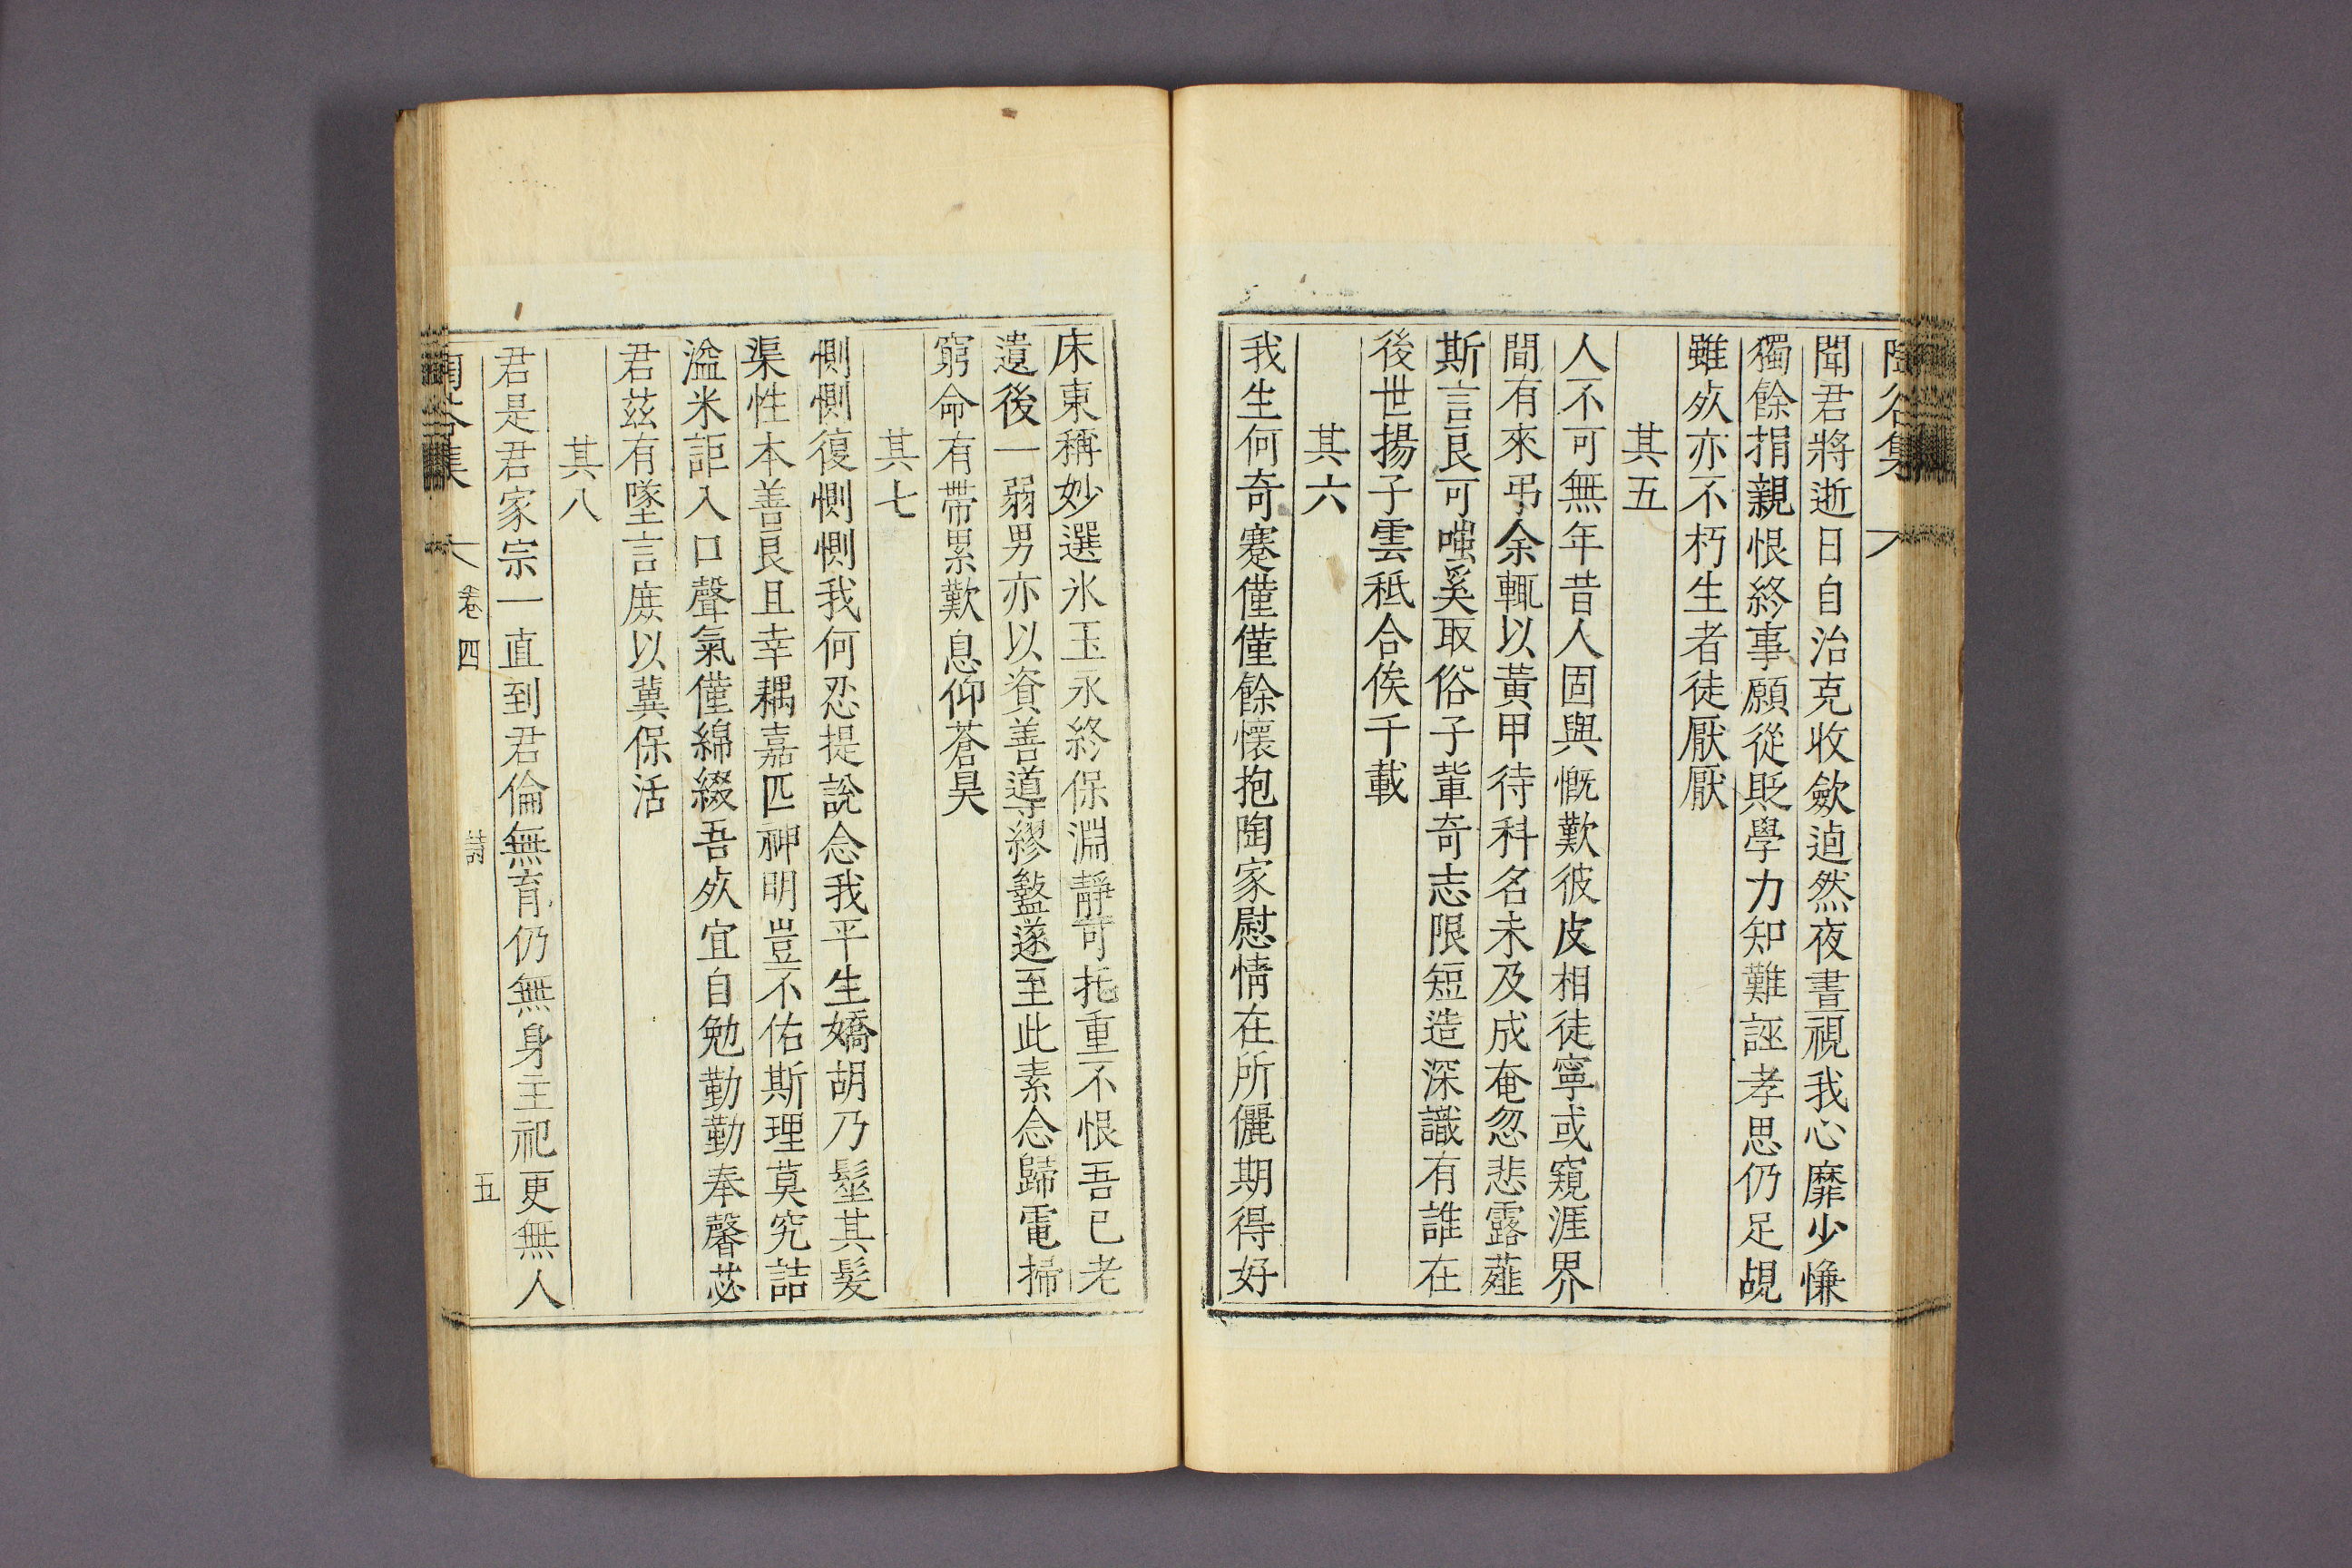 聞君將逝日自治克收歛逌然夜晝視我心靡少慊
獨餘捐親恨終事願從貶學力知難誣孝思仍足覘
雖㱙亦不朽生者徒厭厭
其五
人不可無年昔人固興慨歎彼皮相徒寧或窺涯界
間有來弔余輒以黃甲待科名未及成奄忽悲露薤
斯言良可嗤奚取俗子輩奇志限短造深識有誰在
後世揚子雲秪合俟千載
其六
我生何奇蹇僅僅餘懷抱陶家慰情在所儷期得好
床東稱妙選氷玉永終保淵靜可托重不恨吾已老
遺後一弱男亦以資善導繆盭遂至此素念歸電掃
窮命有帶累歎息仰蒼昊
其七
惻惻復惻惻我何忍提說念我平生嬌胡乃髽其髮
渠性本善良且幸耦嘉匹神明豈不佑斯理莫究詰
溢米詎入口聲氣僅綿綴吾㱙宜自勉勤勤奉馨苾
君茲有墜言庶以冀保活
其八
君是君家宗一直到君倫無育仍無身主祀更無人
卷四
詩
五